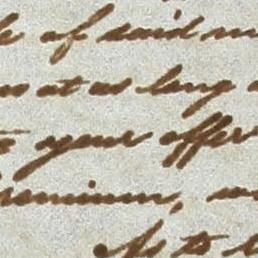 of said
at as long
your offer
remium,
As to